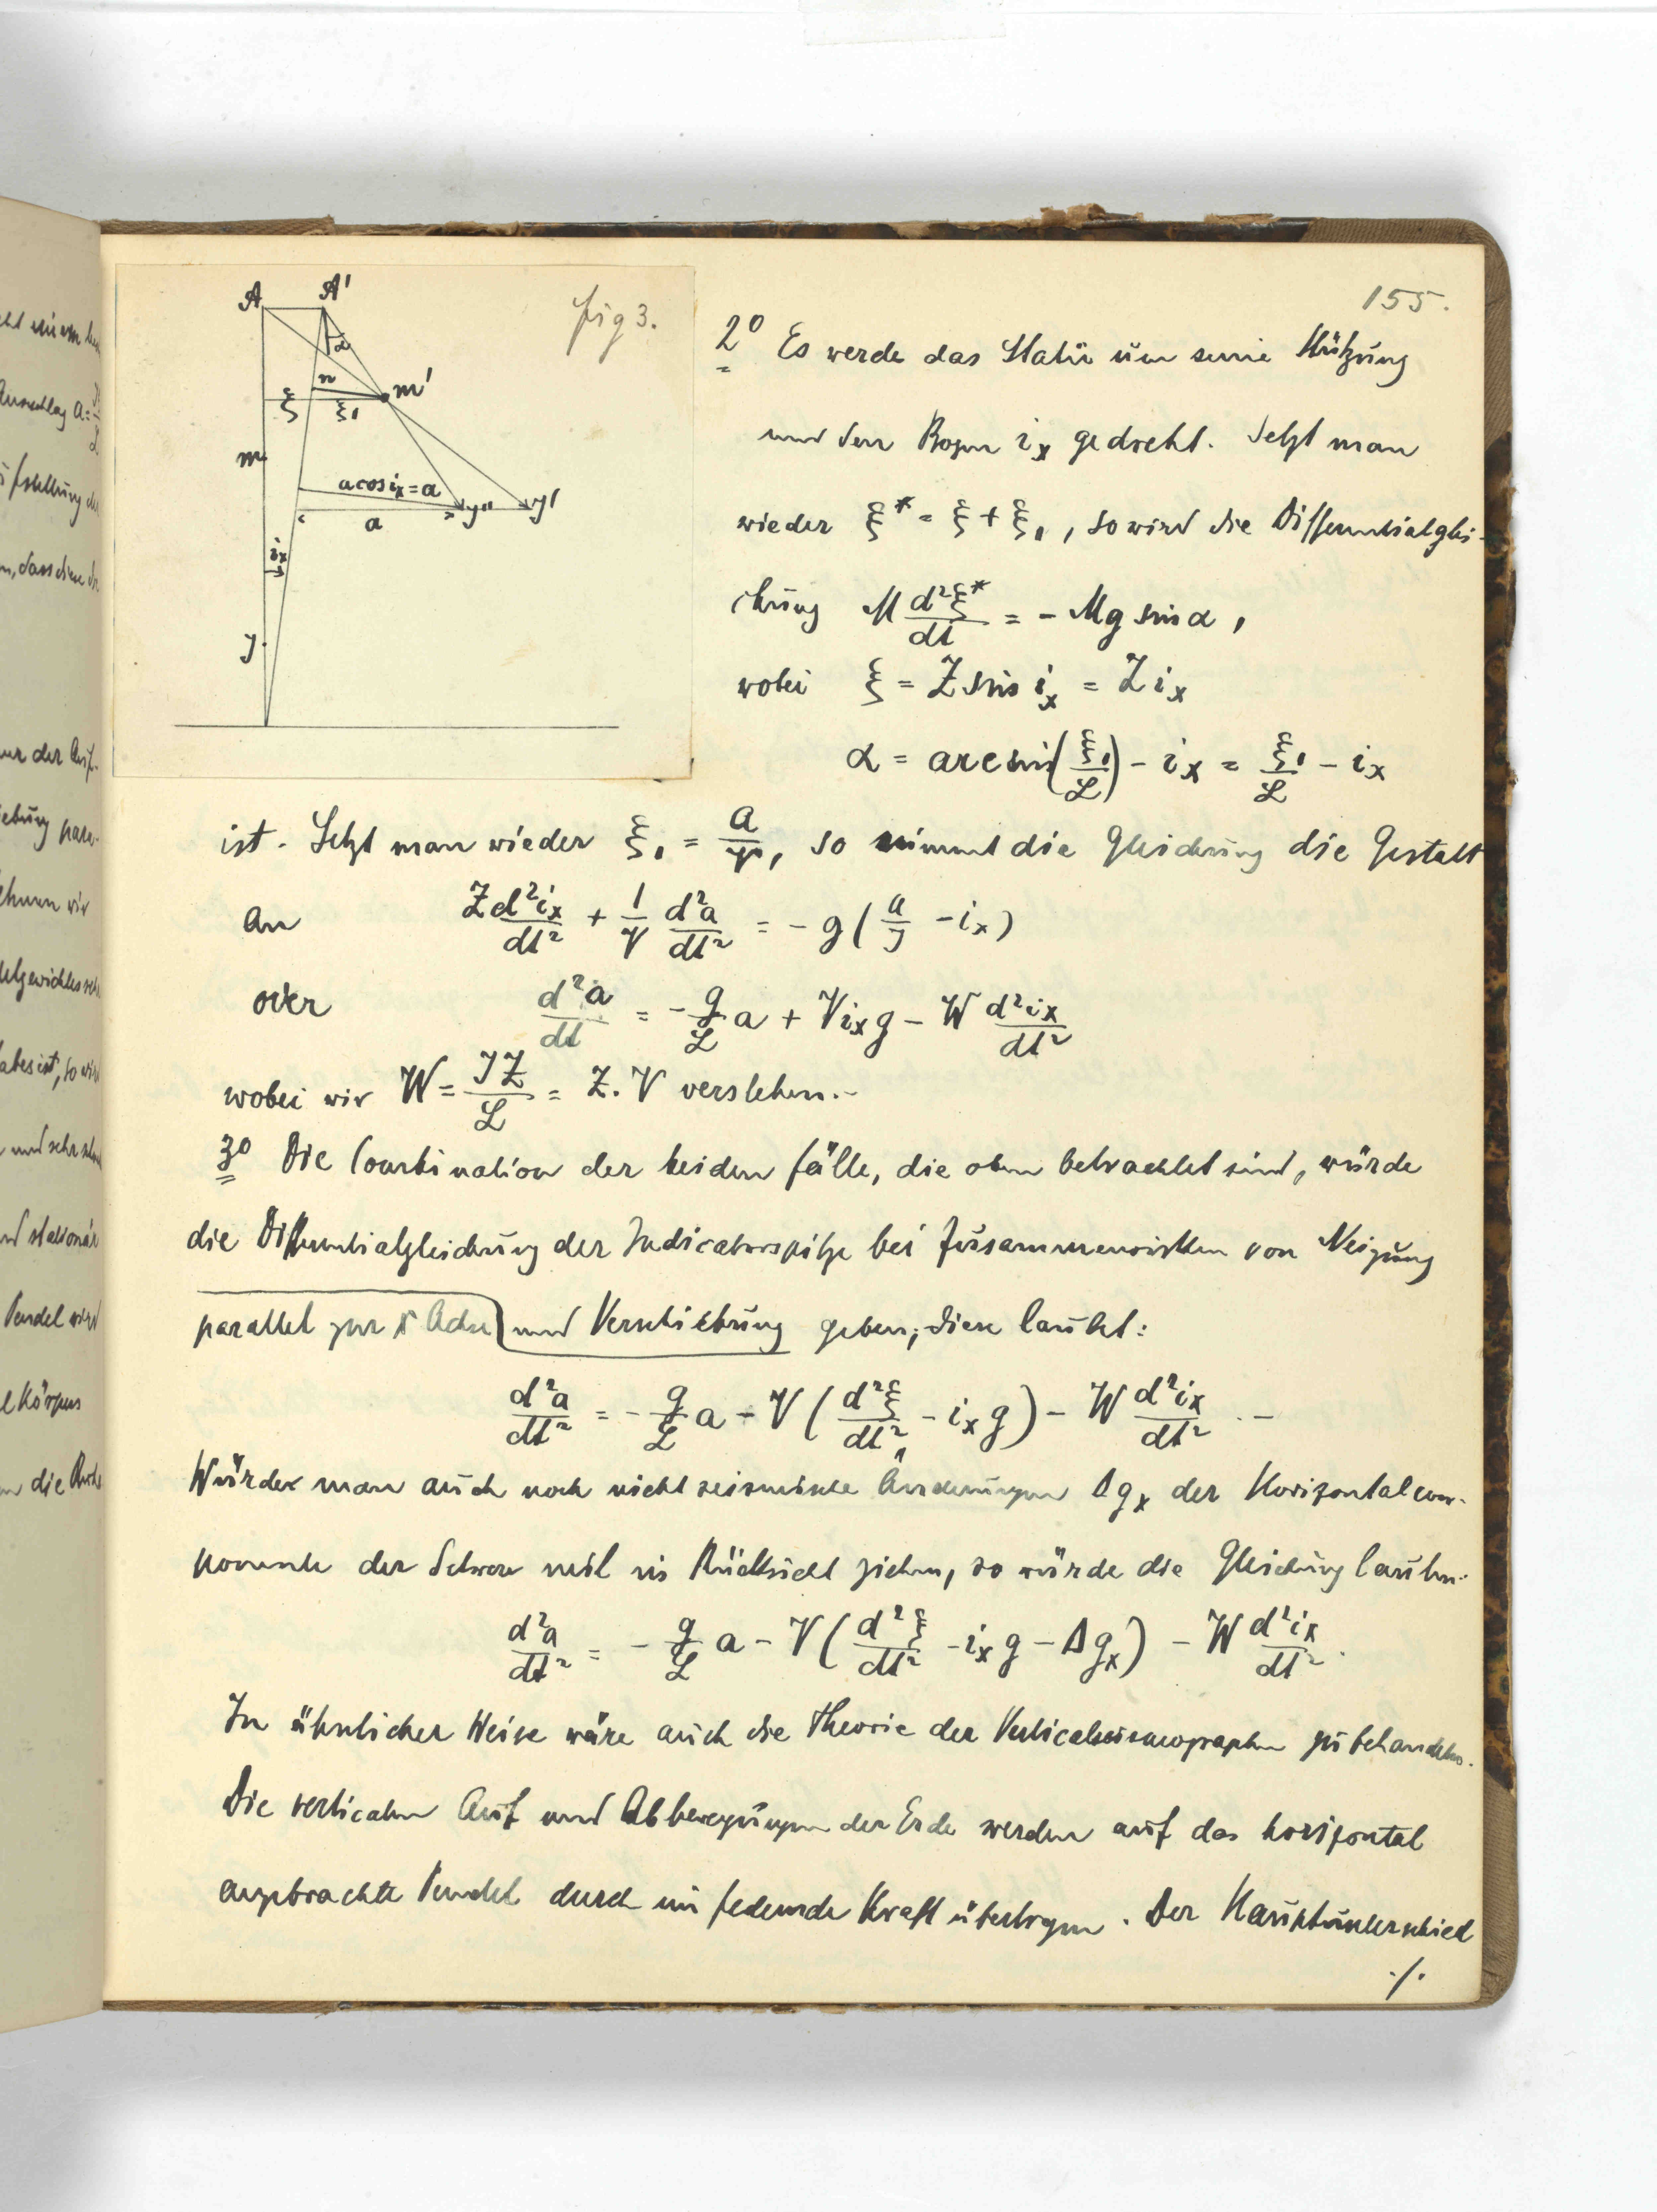 155.
fig 3.
A A'
α
n m'
ξ ξ₁
m
a cos i_x = a
a J'' J'
i_x
J
2° Es werde das Stativ um seine Stützung
und den Bogen i_x gedreht. Setzt man
wieder ξ* = ξ + ξ₁, so wird die Differentialglei-
chung M d²ξ*/dt = - Mg sin α,
wobei ξ = Z sin i_x = Z i_x
α = arc sin(ξ₁/L) - i_x = ξ₁/L - i_x
ist. Setzt man wieder ξ₁ = a/V, so nimmt die Gleichung die Gestalt
an Z d²i_x/dt² + 1/V d²a/dt² = - g (a/J - i_x)
oder d²a/dt = - g/L a + V i_x g - W d²i_x/dt²
wobei wir W = JZ/L = Z. V verstehen.-
3° Die Combination der beiden Fälle, die oben betrachtet sind, würde
die Differentialgleichung der Indicatorspitze bei Zusammenwirken von Neigung
parallel zur x Achse und Verschiebung geben; diese lautet:
d²a/dt² = - g/L a - V (d²ξ/dt² - i_x g) - W d²i_x/dt² . -
Würde man auch noch nicht seismische Änderungen Δg_x der Horizontalcom-
ponente der Schwere mit in Rücksicht ziehen, so würde die Gleichung lauten:
d²a/dt² = - g/L a - V (d²ξ/dt² - i_x g - Δg_x) - W d²i_x/dt² .
In ähnlicher Weise wäre auch die Theorie der Verticalseismographen zu behandeln.
Die verticalen Auf und Abbewegungen der Erde werden auf das horizontal
angebrachte Pendel durch ein federnde Kraft übertragen. Der Hauptunterschied
./.